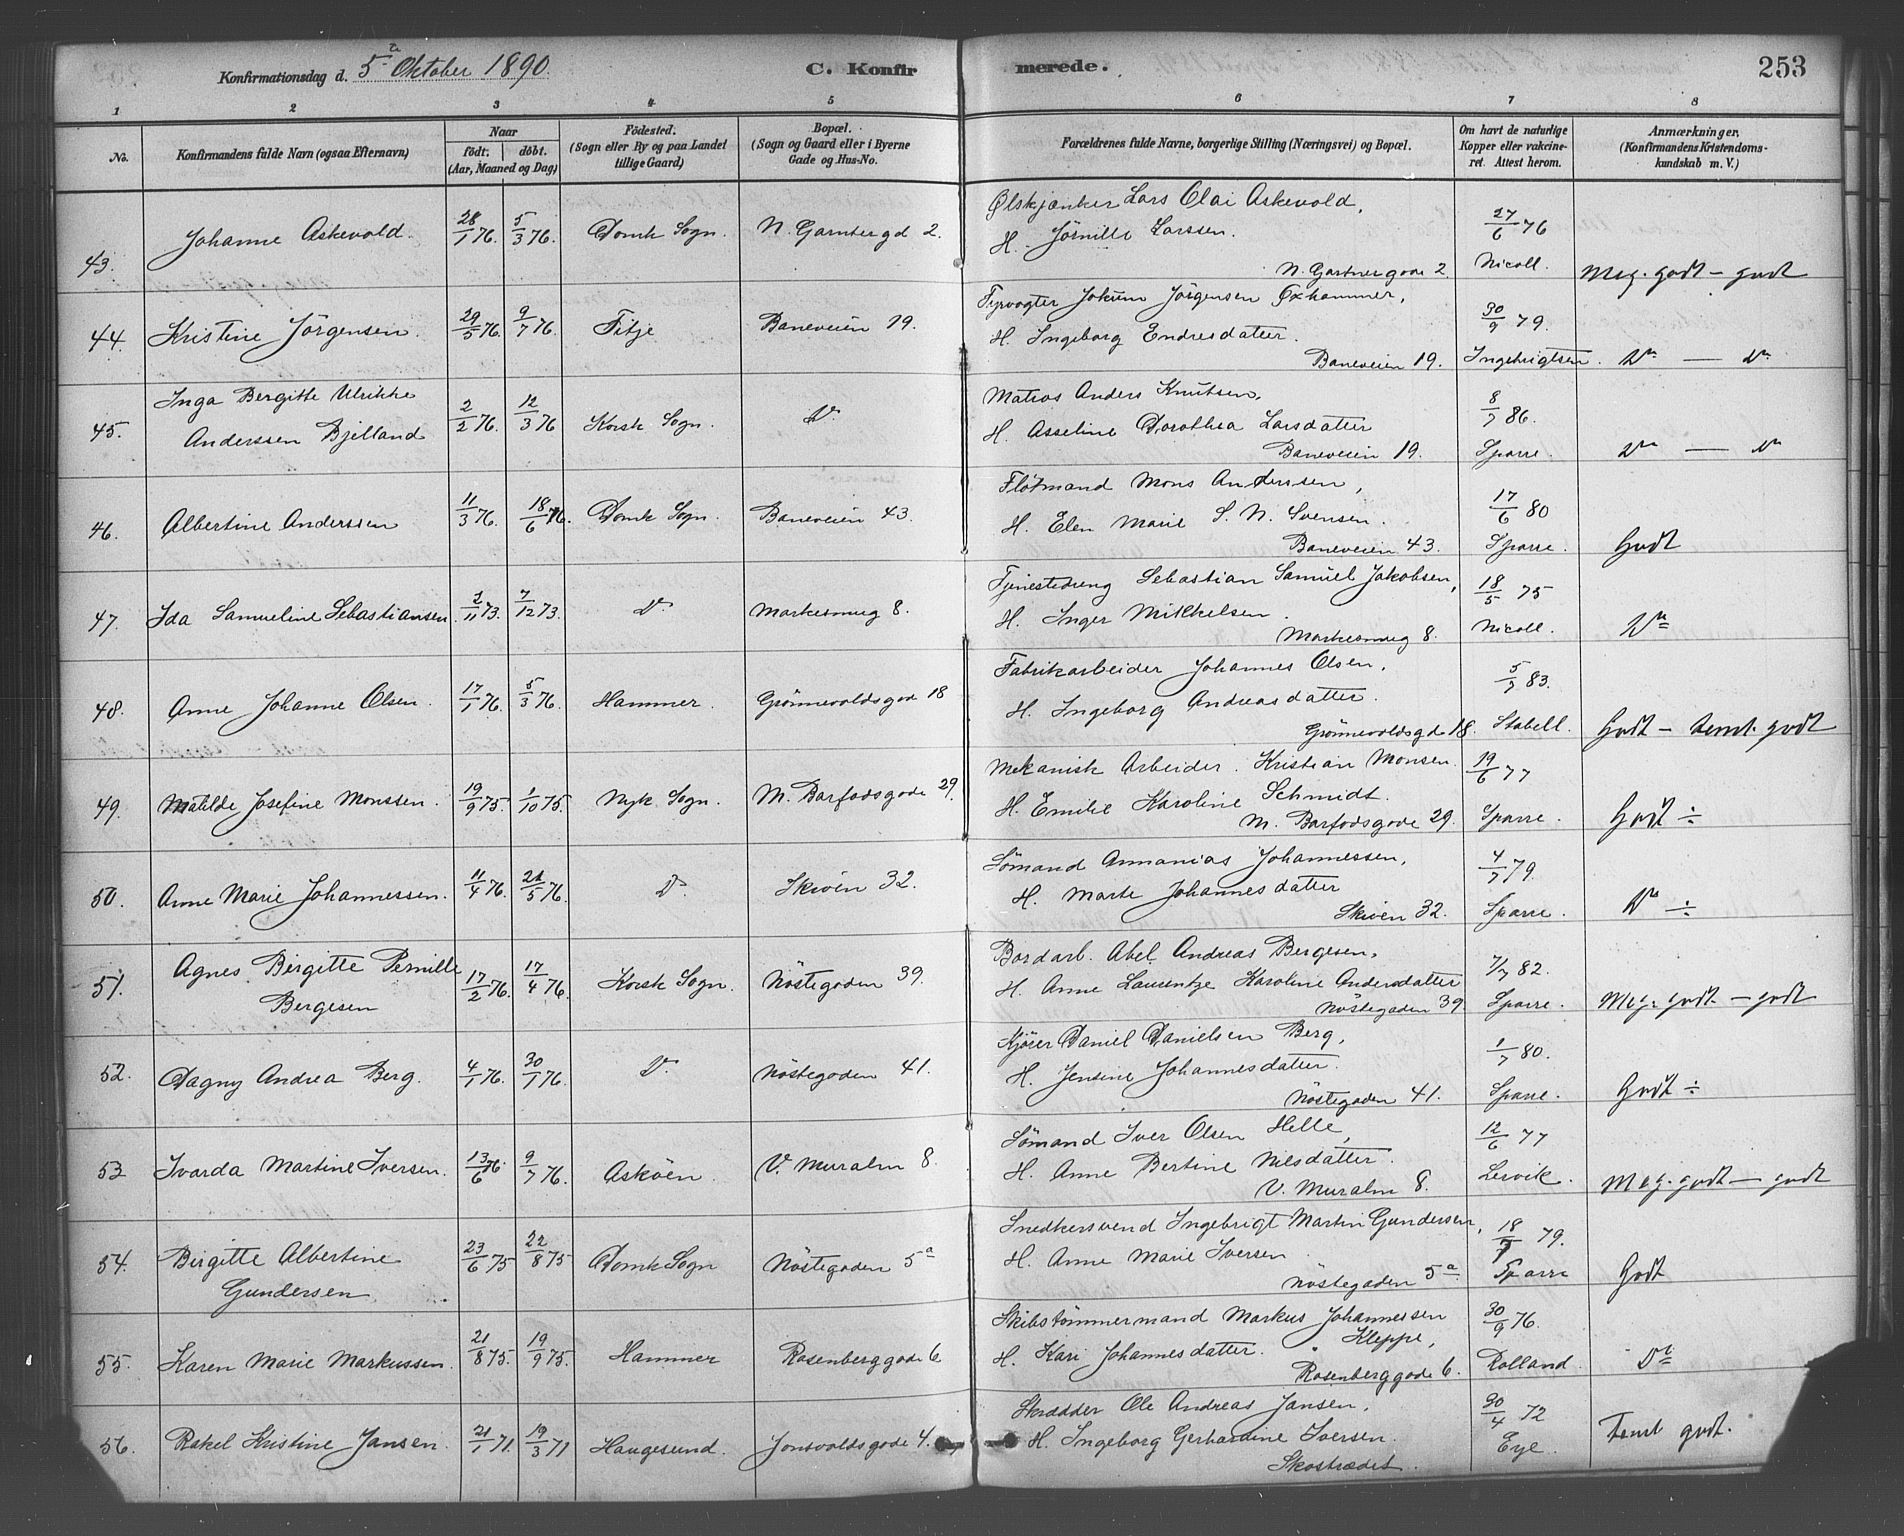 Konfirmationsdag d. 5te Oktober 1890. C. Konfirmerede. 253
1 2 3 4 5 6 7 8
No. Konfirmandens fulde Navn (ogsaa Efternavn) Naar födt. döbt. (Aar, Maaned og Dag) Födested. (Sogn eller By og paa Landet tillige Gaard) Bopæl. (Sogn og Gaard eller i Byerne Gade og Hus-No. Forældrenes fulde Navne, borgerlige Stilling (Næringsvei) og Bopæl. Om havt de naturlige Kopper eller vakcineret. Attest herom. Anmærkninger. (Konfirmandens Kristendomskundskab m. V.)
43. Johanne Askevold. 28/1 76. 5/3 76. Domk Sogn. N. Gartnergd 2. Ølskjænker Lars Olai Askevold, 27/6 76
H. Larssen.
N. Gartnergade 2. Nicoll. Meg. godt - godt
44. Kristine Jörgensen. 29/5 76. 9/7 76. Fitje Baneveien 19. Fyrvogter Jokum Jörgensen Oxhammer, 30/9 79.
H. Ingeborg Endresdatter.
Baneveien 19. Ingebrigtsen. Do — Do
45. Inga Bergitte Ulrikke
Anderssen Bjelland 2/2 76. 12/3 76 Korsk Sogn. Do Matros Anders Knutsen, 8/7 86.
H. Asseline Dorothea Larsdatter
Baneveien 19. Sparre. Do — Do
46. Albertine Anderssen 11/3 76. 18/6 76. Domk Sogn. Baneveien 43. Fløtmand Mons Anderssen, 17/6 80
H. Elen Marie S. N. Svensen.
Baneveien 43. Sparre. Godt
47. Ida Samueline Sebastiansen 2/11 73. 7/12 73. Do Markesmug 8. Tjenestedreng Sebastian Samuel Jakobsen, 18/5 75
H. Inger Mikkelsen.
Markesmug 8. Nicoll. Do
48. Anne Johanne Olsen. 17/1 76. 5/3 76. Hammer. Grönnevoldsgade 18 Fabrikarbeider Johannes Olsen, 5/7 83.
H. Ingeborg Andreasdatter.
Grönnevoldsgd 18. Stabell. Godt - temt. godt
49. Matilde Josefine Monssen. 19/9 75. 1/10 75. Nyk. Sogn. M. Barfodsgade 29. Mekanisk Arbeider. Kristian Monsen. 19/6 77
H. Emilie Karoline Schmidt.
M. Barfodsgade 29. Sparre. Godt ÷
50. Anne Marie Johannessen. 11/4 76. 21/5 76. Do Skivén 32. Sömand Annanias Johannessen, 4/7 79.
H. Marte Johannesdatter
Skivén 32. Sparre. Do ÷
51. Agnes Birgitte Pernille
Bergesen 17/2 76. 17/4 76. Korsk Sogn. Nöstegaden 39. Bordarb. Abel Andreas Bergesen, 7/7 82.
H. Anne Laurentze Karoline Andersdatter
Nöstegaden 39. Sparre. Meg. godt - godt
52. Dagny Andrea Berg. 4/1 76. 30/1 76. Do Nöstegaden 41. Kjörer Daniel Danielsen Berg, 1/7 80.
H. Jensine Johannesdatter.
Nöstegaden 41. Sparre. Godt ÷
53 Ivarda Martine Iversen. 13/6 76. 9/7 76. Asköen. V. Muralm 8. Sömand Iver Olsen Helle, 12/6 77
H. Anne Bertine Nilsdatter.
V. Muralm 8. Lervik. Meg. godt - godt
54. Birgitte Albertine
Gundersen 23/6 75 22/8 75 Domk Sogn Nöstegaden 5a Snedkersvend Ingebrigt Martin Gundersen, 18/7 79.
H. Anne Marie Iversen.
Nöstegaden 5a. Sparre Godt
55. Karen Marie Markussen. 21/8 75. 19/9 75. Hammer Rosenberggade 6 Skibstömmermand Markus Johannessen 30/9 76.
Kleppe,
H. Kari Johannesdatter.
Rosenberggade 6. Rolland. Do
56. Rakel Kristine Jansen. 21/1 71. 19/3 71 Haugesund. Jonsvoldsgade 4. Skrædder Ole Andreas Jansen, 30/4 72
H. Ingeborg Gerhardine Iversen. Eye. Temt godt.
Skostrædet.